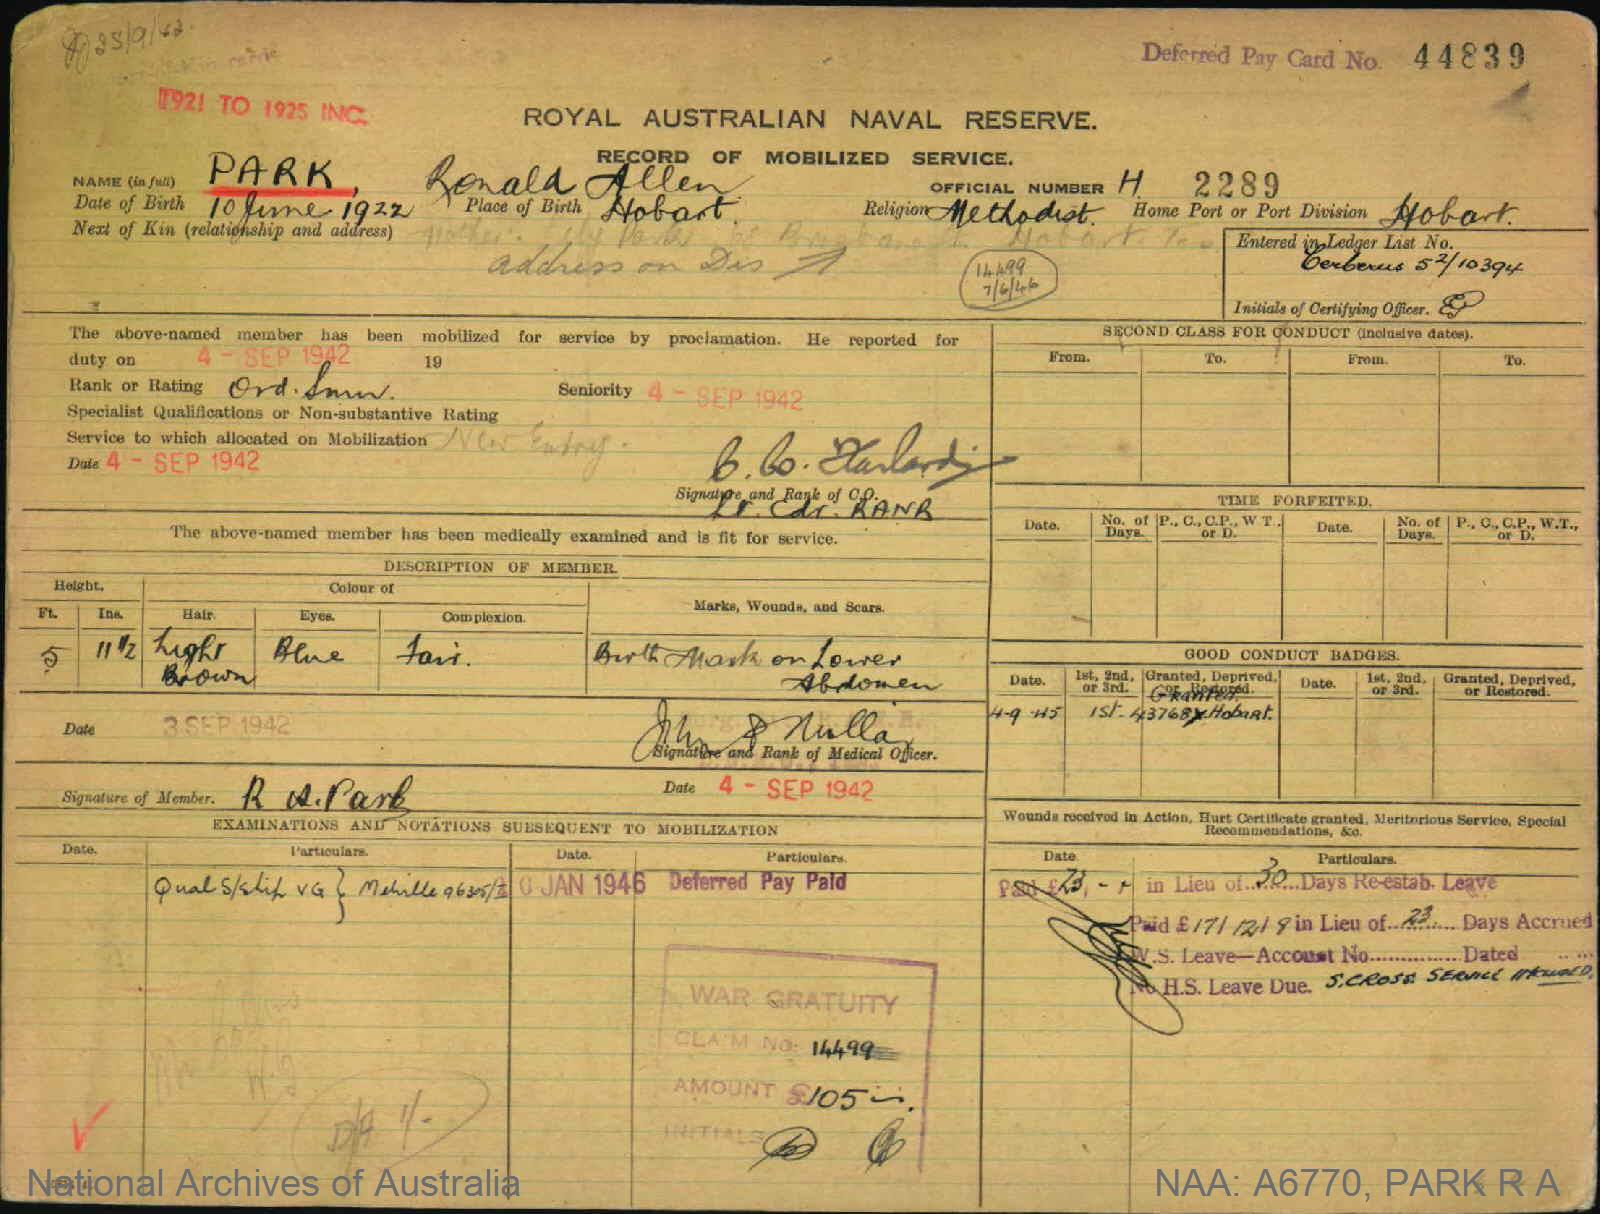 25/9/62.
Deferred Pay Card No. 44839
1921 TO 1925 INC.
ROYAL AUSTRALIAN NAVAL RESERVE.
RECORD OF MOBILIZED SERVICE.
NAME (in full) PARK, Ronald Allen OFFICIAL NUMBER H. 2289
Date of Birth 10 June 1922 Place of Birth Hobart. Religion Methodist. Home Port or Port Division Hobart.
Next of Kin (relationship and address) Mother. Hobart. Tas
address on Dis
14499
7/6/46
Entered in Ledger List No.
Cerberus 5 2/10394
Initials of Certifying Officer.
The above-named member has been mobilized for service by proclamation. He reported for
duty on 4 - SEP 1942 19
Rank or Rating Ord. Smn. Seniority 4 - SEP 1942
Specialist Qualifications or Non-substantive Rating
Service to which allocated on Mobilization New Entry.
Date 4 - SEP 1942
Signature and Rank of C.O.
Lt. Cdr. RANR
The above-named member has been medically examined and is fit for service.
DESCRIPTION OF MEMBER.
Height. Colour of Marks, Wounds, and Scars.
Ft. Ins. Hair. Eyes. Complexion.
5 11 1/2 Light Brown Blue Fair. Birth Mark on Lower Abdomen
Date 3 SEP 1942
Signature and Rank of Medical Officer.
Signature of Member. R A. Park Date 4 - SEP 1942
EXAMINATIONS AND NOTATIONS SUBSEQUENT TO MOBILIZATION
Date. Particulars. Date. Particulars.
Qual S/Ship VG } Melville 96305/ 0 JAN 1946 Deferred Pay Paid
WAR GRATUITY
CLAIM No. 14499
AMOUNT £105
INITIALS
SECOND CLASS FOR CONDUCT (inclusive dates).
From. To. From. To.
TIME FORFEITED.
Date. No. of Days. P., C., C.P., W.T., or D. Date. No. of Days. P., C., C.P., W.T., or D.
GOOD CONDUCT BADGES.
Date. 1st, 2nd, or 3rd. Granted, Deprived, or Restored. Date. 1st, 2nd, or 3rd. Granted, Deprived, or Restored.
Granted
4-9-45 1st - 43768 Hobart.
Wounds received in Action, Hurt Certificate granted, Meritorious Service, Special
Recommendations, &c.
Date. Particulars.
Paid £23, - in Lieu of 30 Days Re-estab. Leave
Paid £17/12/9 in Lieu of 23 Days Accrued
W.S. Leave—Account No. Dated
No H.S. Leave Due. S. CROSS SERVICE
National Archives of Australia
NAA: A6770, PARK R A